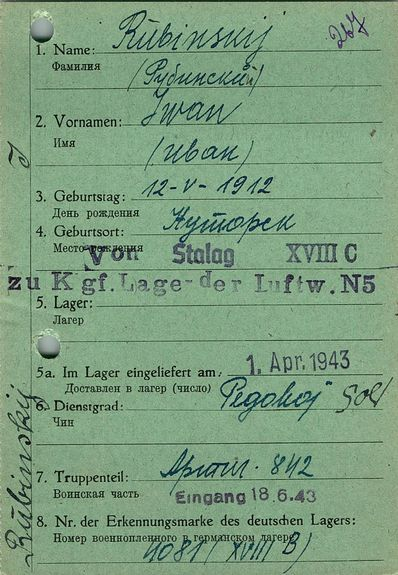 267
1. Name: Rubinskij
Фамилия (Рубинский)
2. Vornamen: Iwan
Имя (Иван)
3. Geburtstag: 12-V-1912
День рождения
4. Geburtsort: Куторск
Место рождения
Von Stalag XVIII C
zu Kgf. Lage- der Luftw. N5
5. Lager:
Лагерь
5a. Im Lager eingeliefert am: 1. Apr. 1943
Доставлен в лагерь (число)
6. Dienstgrad: Sol
Чин
7. Truppenteil: Артил. 842
Воинская часть Eingang 18.6.43
8. Nr. der Erkennungsmarke des deutschen Lagers:
Номер военнопленного в германском лагере
4081 (XVIII B)
Rubinskij
J